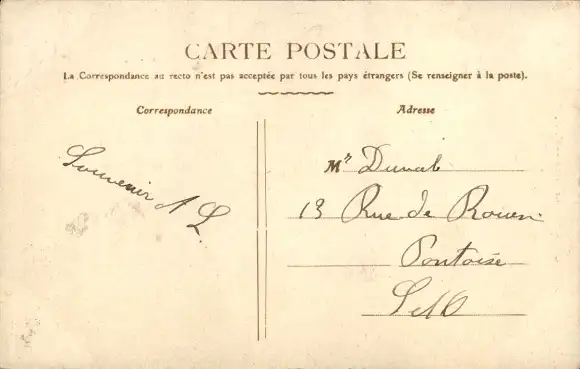 CARTE POSTALE
La Correspondance au recto n'est pas acceptée par tous les pays étrangers (Se renseigner à la poste).
Correspondance
Adresse
Souvenir A L
Mr Duval
13 Rue de Rouen
Pontoise
S et O